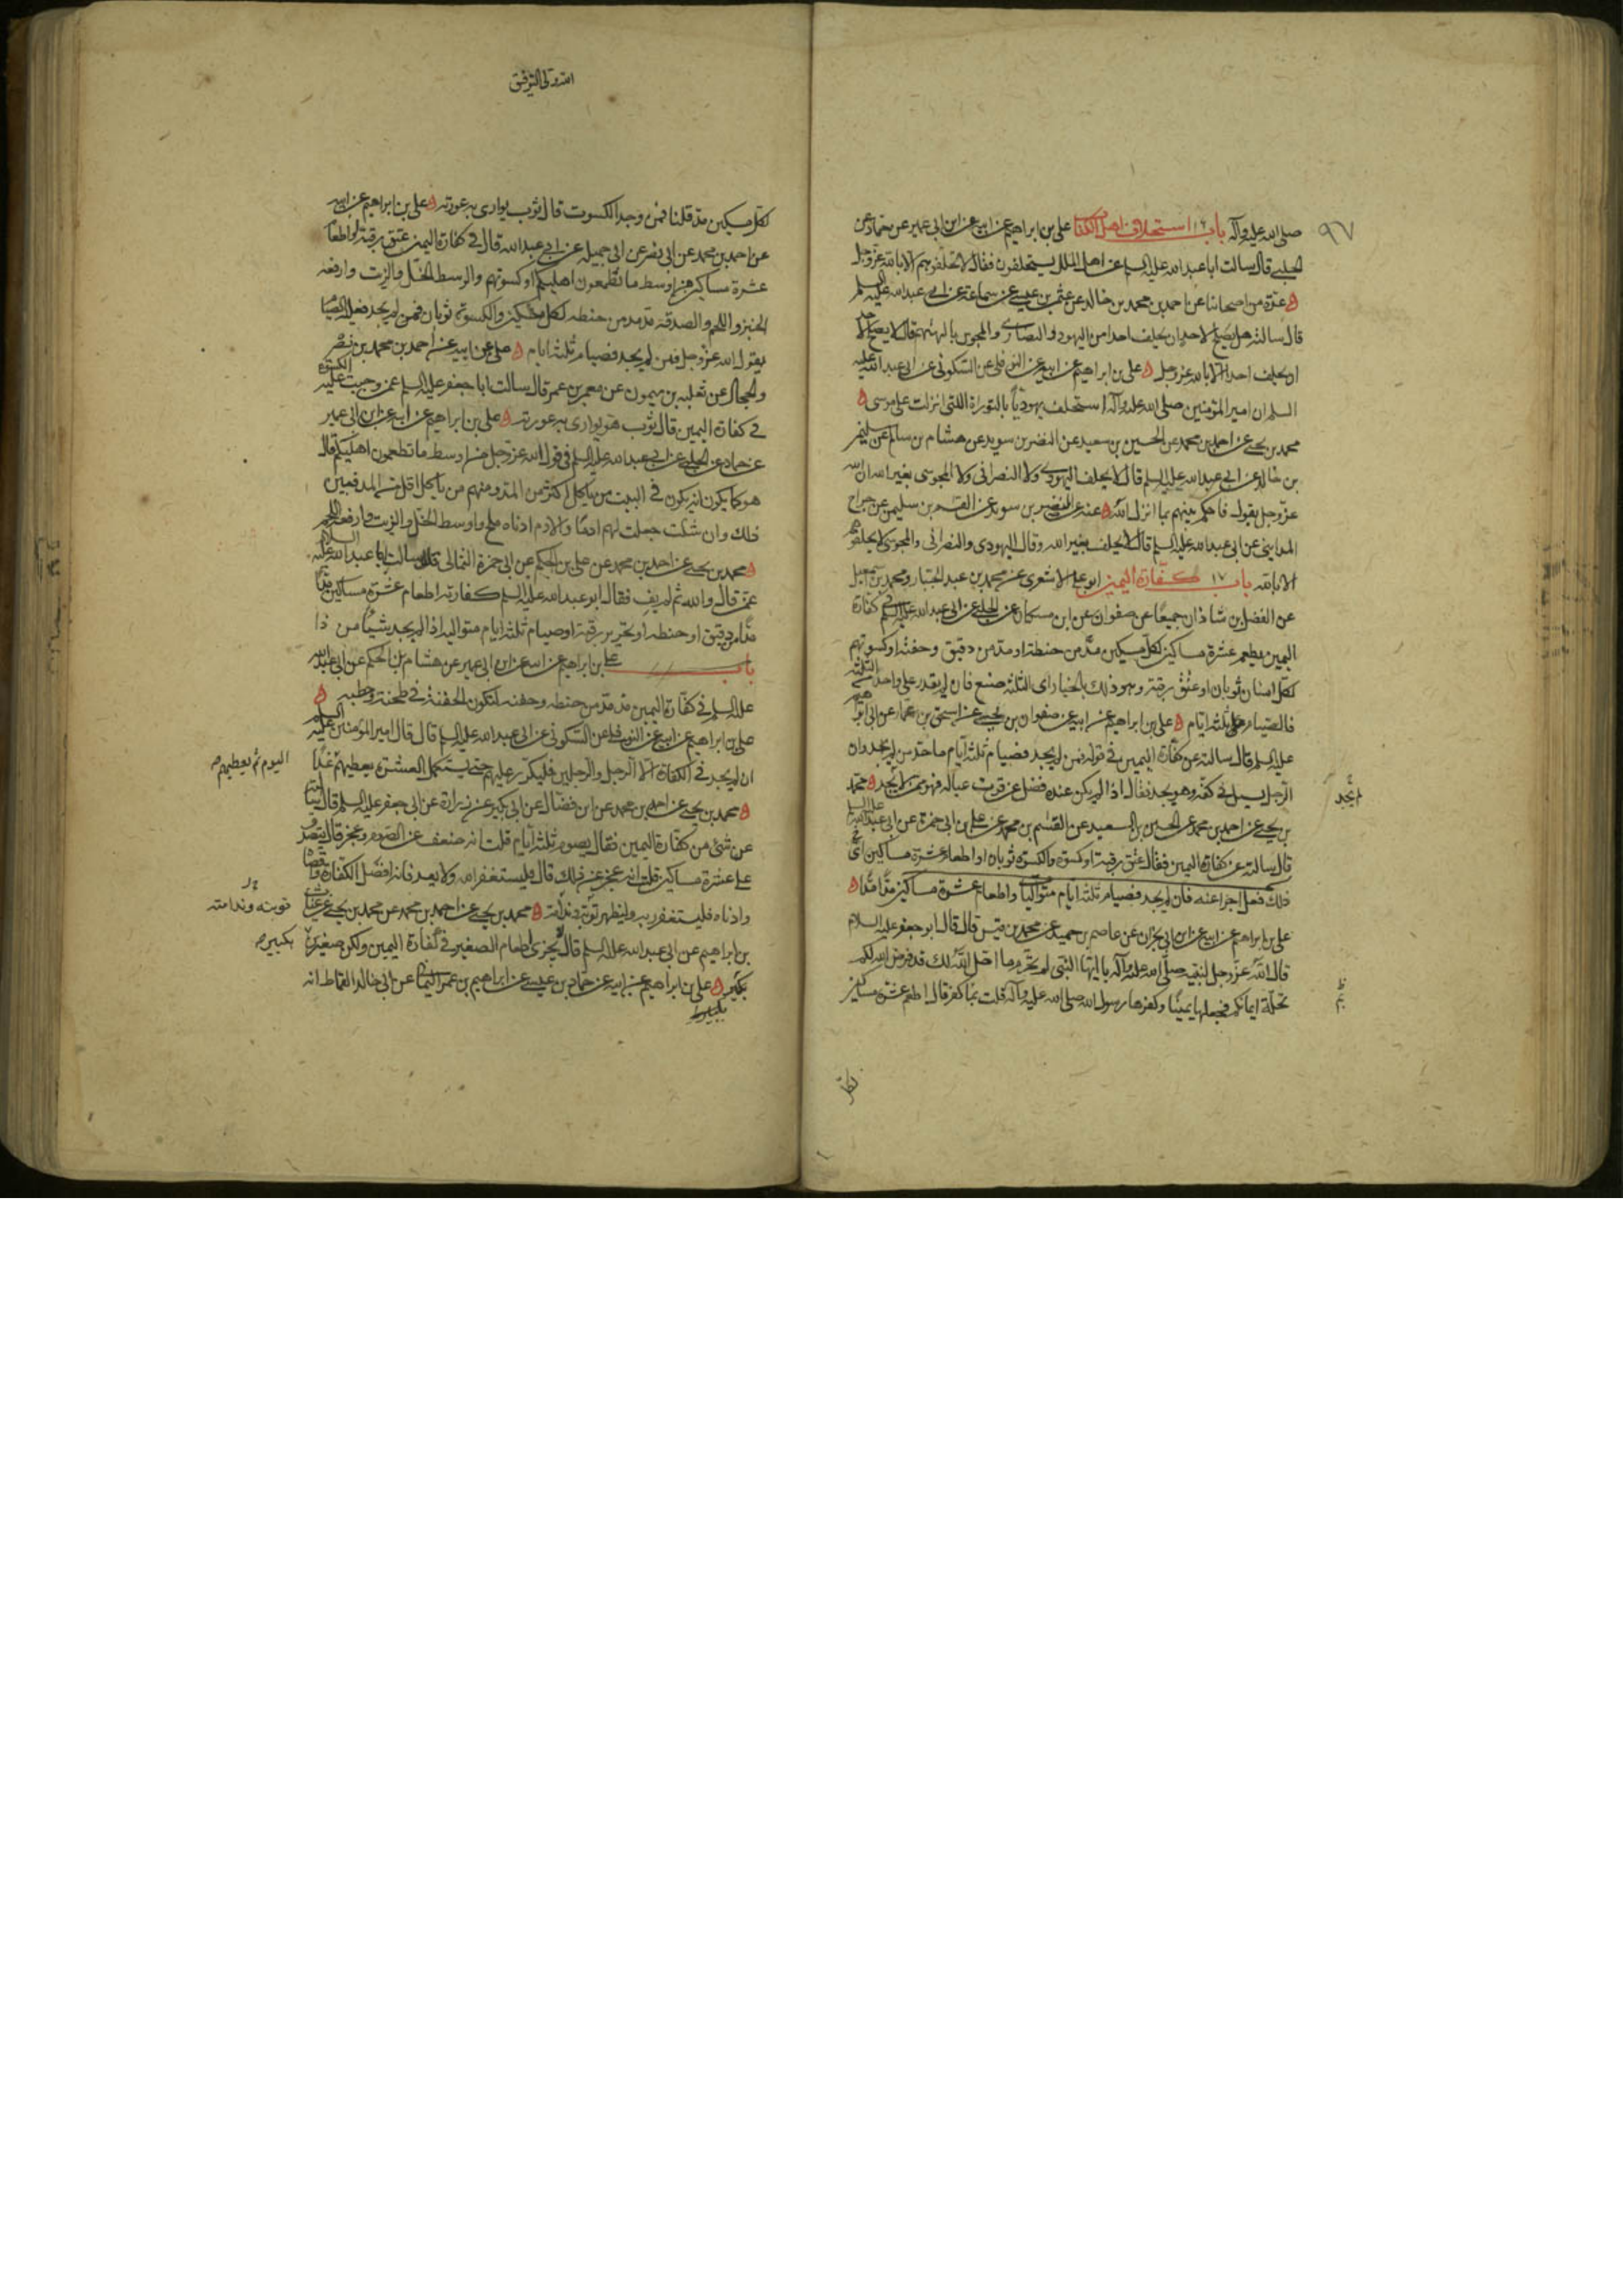 ٩٧
صلى الله عليه وآله باب ١٦ استحلاف اهل الكتاب على بن ابراهيم عن ابيه عن ابن ابى عمير عن حماد عن
الحلبى قال سالت ابا عبد الله عليه السلم عن اهل الملل يستحلفون فقال لا تحلفوهم الا بالله عز وجل
عدة من اصحابنا عن احمد بن محمد بن خالد عن عثمن بن عيسى عن سماعة عن ابى عبد الله عليه السلم
قال سالته هل يصلح لاحد ان يحلف احدا من اليهود والنصارى والمجوس بالهتهم قال لا يصلح لاحد
ان يحلف احدا الا بالله عز وجل على بن ابراهيم عن ابيه عن النوفلى عن السكونى عن ابى عبد الله عليه
السلم ان امير المؤمنين صلى الله عليه وآله استحلف يهودياً بالتوراة اللتى انزلت على موسى
محمد بن يحيى عن احمد بن محمد عن الحسين بن سعيد عن النضر بن سويد عن هشام بن سالم عن سليمن
بن خالد عن ابى عبد الله عليه السلم قال لا يحلف اليهودى ولا النصرانى ولا المجوسى بغير الله ان الله
عز وجل يقول فاحكم بينهم بما انزل الله عنه عن النضر بن سويد عن القسم بن سليمن عن جراح
المداينى عن ابى عبد الله عليه السلم قال لا يحلف بغير الله وقال اليهودى والنصرانى والمجوسى لا يحلفوهم
الا بالله باب ١٧ كفّارة اليمين ابو على الاشعرى عن محمد بن عبد الجبار ومحمد بن اسمعيل
عن الفضل بن شاذان جميعًا عن صفوان عن ابن مسكان عن الحلبى عن ابى عبد الله عليه السلم فى كفّارة
اليمين يطعم عشرة مساكين لكل مسكين مدّ من حنطة او مد من دقيق وحفنة او كسوتهم
لكل انسان ثوبان او عتق رقبة وهو فى ذلك بالخيار اى الثلثة صنع فان لم يقدر على واحدة من الثلثة
فالصيام عليه ثلثة ايّام على بن ابراهيم عن ابيه عن صفوان بن يحيى عن اسحق بن عمار عن ابى ابراهيم
عليه السلم قال سالته عن كفارة اليمين فى قوله فمن لم يجد فصيام ثلثة ايّام ما حد من لم يجد وان
الرجل ليسال فى كفّه وهو يجد فقال اذا لم يكن عنده فضل عن قوت عياله فهو ممن لا يجد محمد
لم يجد
بن يحيى عن احمد بن محمد عن الحسين بن سعيد عن القسم بن محمد عن على بن ابى حمزة عن ابى عبد الله عليه السلم
قال سالته عن كفارة اليمين فقال عتق رقبة او كسوة والكسوة ثوبان او اطعام عشرة مساكين اى
ذلك فعل اجزا عنه فان لم يجد فصيام ثلثة ايام متواليا واطعام عشرة مساكين مدّا مدّا
على بن ابراهيم عن ابيه عن ابن ابى نجران عن عاصم بن حميد عن محمد بن قيس قال قال ابو جعفر عليه السلام
قال الله عز وجل لنبيه صلى الله عليه وآله يا ايها النبى لم تحرم ما احل الله لك قد فرض الله لكم
تحلّة ايمانكم فجعلها يمينًا وكفرها رسول الله صلى الله عليه وآله قلت بما كفر قال اطعم عشرة مساكين
الله ولى التوفيق
لكل مسكين مد قلنا فمن وجد الكسوت قال ثوب يوارى به عورته على بن ابراهيم عن ابيه
عن احمد بن محمد عن ابى نصر عن ابى جميله عن ابى عبد الله قال فى كفارة اليمين عتق رقبة او اطعام
عشرة مساكين من اوسط ما تطعمون اهليكم او كسوتهم والوسط الخل والزيت وارفعه
الخبز واللحم والصدقة مد مد من حنطه لكل مسكين والكسوة ثوبان فمن لم يجد فعليه الصيام
يقول الله عز وجل فمن لم يجد فصيام ثلثة ايام على عن ابيه عن احمد بن محمد بن نصر
والحجال عن ثعلبه بن ميمون عن معمر بن عمر قال سالت ابا جعفر عليه السلم عمن وجبت عليه الكسوة
فى كفارة اليمين قال ثوب هو يوارى به عورته على بن ابراهيم عن ابيه عن ابن ابى عمير
عن حماد عن الحلبى عن ابى عبد الله عليه السلم فى قول الله عز وجل من اوسط ما تطعمون اهليكم قال
هو كما يكون انه يكون فى البيت من ياكل اكثر من المد ومنهم من ياكل اقل من المد فبين
ذلك وان شئت جعلت لهم ادمًا والادم ادناه ملح واوسطه الخل والزيت وارفعه اللحم
محمد بن يحيى عن احمد بن محمد عن على بن الحكم عن ابى حمزة الثمالى قال سالت ابا عبد الله عليه السلام
عمن قال والله ثم لم يف فقال ابو عبد الله عليه السلم كفارته اطعام عشرة مساكين مدّا
مدّا من دقيق او حنطه او تحرير رقبة او صيام ثلثة ايام متواليه اذا لم يجد شيئًا من ذا
باب على بن ابراهيم عن ابيه عن ابن ابى عمير عن هشام بن الحكم عن ابى عبد الله
عليه السلم فى كفّارة اليمين مد مد من حنطه وحفنه لتكون الحفنة فى طحنه وحطبه
على بن ابراهيم عن ابيه عن النوفلى عن السكونى عن ابى عبد الله عليه السلم قال قال امير المؤمنين عليه السلم
ان لم يجد فى الكفّارة الا الرجل والرجلين فليكرر عليهم حتى يستكمل العشرة يعطيهم غدًا
اليوم ثم يعطيهم
محمد بن يحيى عن احمد بن محمد عن ابن فضال عن ابى بكير عن زرارة عن ابى جعفر عليه السلم قال سالته
عن شئ من كفّارة اليمين فقال يصوم ثلثة ايّام قلت انه ضعف عن الصوم وعجز قال يتصدق
على عشرة مساكين قلت انه عجز عن ذلك قال فليستغفر الله ولا يعد فانه افضل الكفّارة واقصاه
وادناه فليستغفر ربه وليظهر توبة وندامة محمد بن يحيى عن احمد بن محمد عن محمد بن يحيى عن غياث
توبته وندامته
بن ابراهيم عن ابى عبد الله عليه السلم قال لا يجزى اطعام الصغير فى كفّارة اليمين ولكن صغيرين
بكبير
بكبير على بن ابراهيم عن ابيه عن حماد بن عيسى عن ابراهيم بن عمر اليمانى عن ابى خالد القماط انه